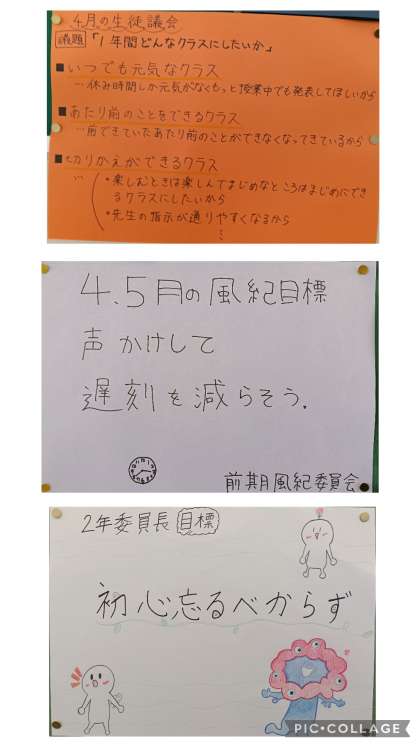 4月の生徒議会
議題 「1年間どんなクラスにしたいか」
■いつでも元気なクラス
…休み時間しか元気がなくもっと授業中でも発表してほしいから
■あたり前のことをできるクラス
…前できていたあたり前のことができなくなってきているから
■切りかえができるクラス
…
・楽しむときは楽しんでまじめなところはまじめにでき
るクラスにしたいから
・先生の指示が通りやすくなるから
⋮
4.5月の風紀目標
声かけして
遅刻を減らそう.
前期風紀委員会
2年委員長 目標
初心忘るべからず
PIC•COLLAGE